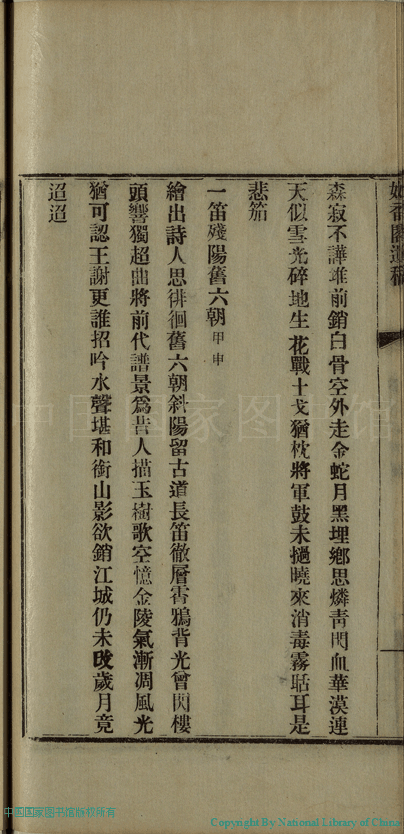 香閣遺稿
森寂不譁堆前銷白骨空外走金蛇月黑埋鄉思燐靑閃血華漠連
天似雪光碎地生花戰士戈猶枕將軍鼓未撾曉來消毒霧聒耳是
悲笳
一笛殘陽舊六朝 甲申
繪出詩人思徘徊舊六朝斜陽留古道長笛徹層霄鴉背光曾閃樓
頭響獨超曲將前代譜景爲昔人描玉樹歌空憶金陵氣漸凋風光
猶可認王謝更誰招吟水聲堪和銜山影欲銷江城仍未改歲月竟
迢迢
中国国家图书馆
中国国家图书馆版权所有
Copyright By National Library of China